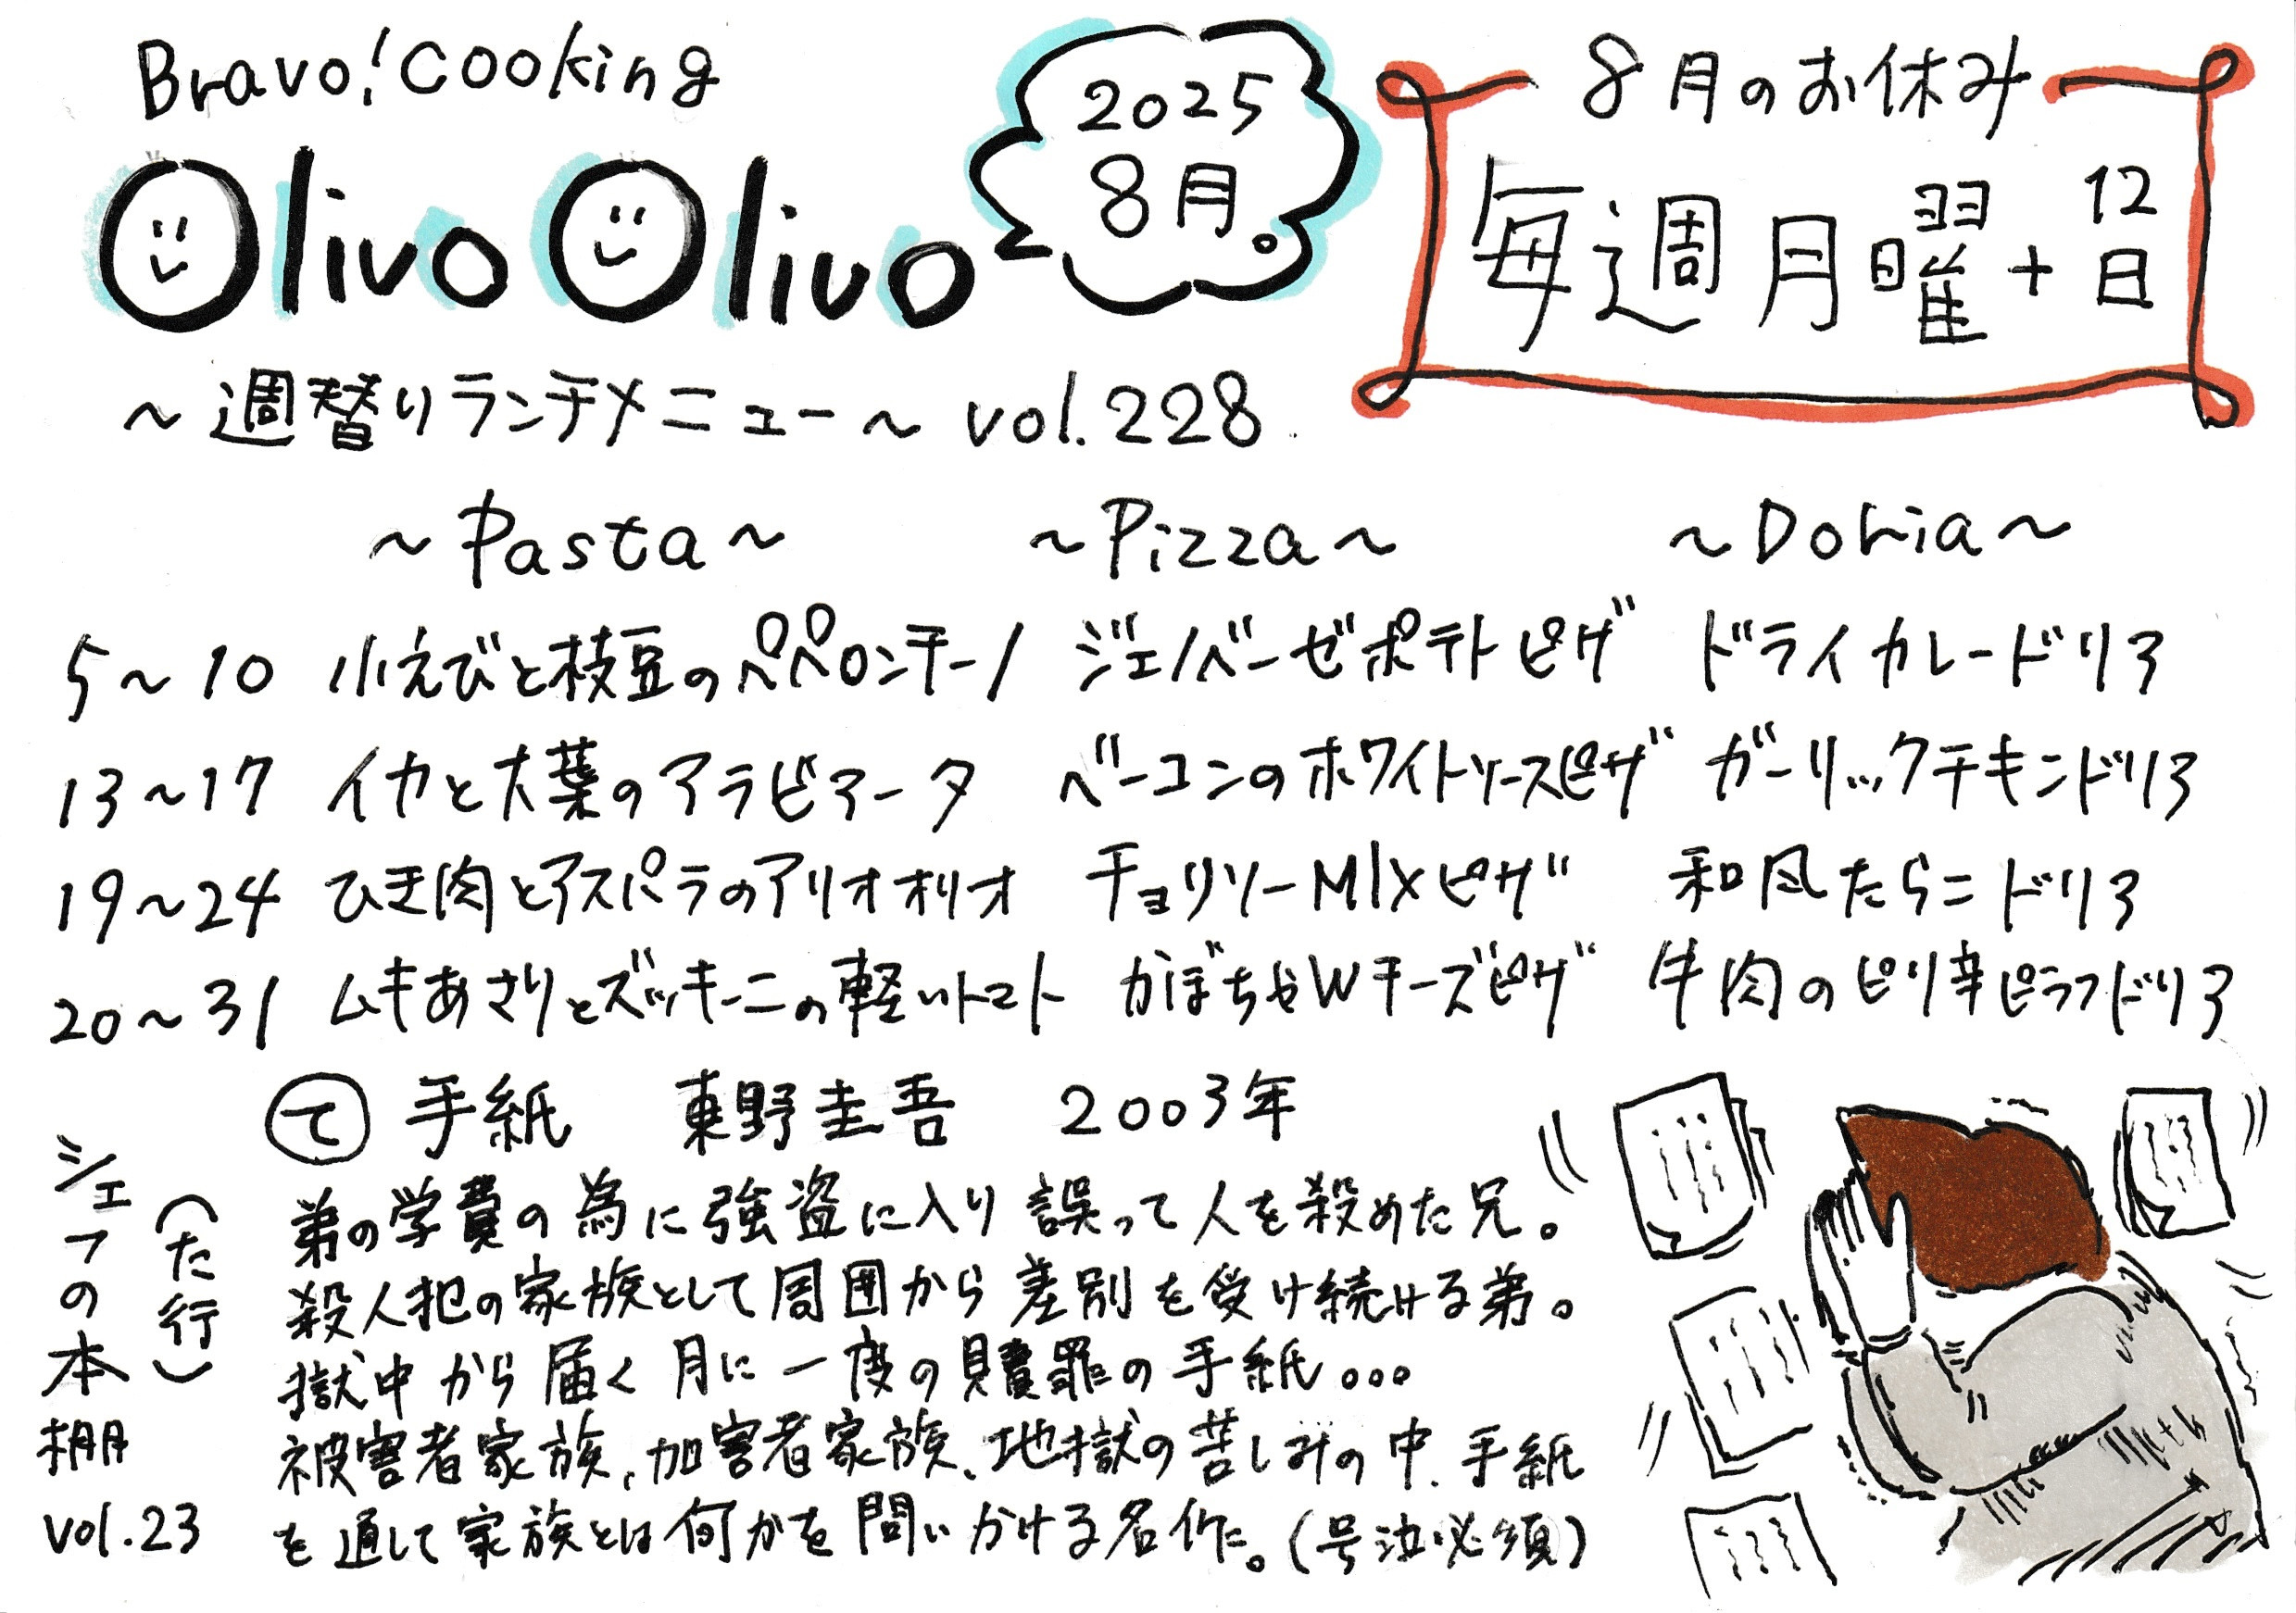 Bravo! Cooking
Olivo Olivo
2025
8月。
8月のお休み
毎週月曜+12日
～週替りランチメニュー～ vol.228
～Pasta～ ～Pizza～ ～Doria～
5～10 小えびと枝豆のペペロンチーノ ジェノベーゼポテトピザ ドライカレードリア
13～17 イカと大葉のアラビアータ ベーコンのホワイトソースピザ ガーリックチキンドリア
19～24 ひき肉とアスパラのアリオオリオ チョリソーMIXピザ 和風たらこドリア
20～31 ムキあさりとズッキーニの軽いトマト かぼちゃWチーズピザ 牛肉のピリ辛ピラフドリア
シェフの本棚
vol.23
(た行)
て 手紙 東野圭吾 2003年
弟の学費の為に強盗に入り誤って人を殺めた兄。
殺人犯の家族として周囲から差別を受け続ける弟。
獄中から届く月に一度の贖罪の手紙...
被害者家族、加害者家族、地獄の苦しみの中、手紙
を通して家族とは何かを問いかける名作。(号泣必須)